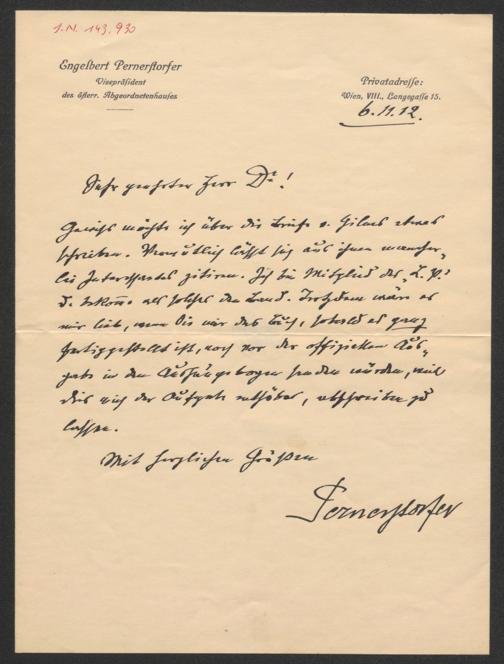 I.N. 143.930
Engelbert Pernerstorfer
Vizepräsident
des österr. Abgeordnetenhauses
Privatadresse:
Wien, VIII., Langegasse 15.
6.11.12.
Sehr geehrter Herr Dr!
Gewiß möchte ich über die Briefe v. Gilm etwas
schreiben. Vermutlich läßt sich aus ihnen mancher-
lei Interessantes zitiren. Ich bin Mitglied des „L. V."
u. bekomme als solches den Band. Trotzdem wäre es
mir lieb, wenn Sie mir das Buch, sobald es ganz
fertiggestellt ist, noch vor der offiziellen Aus-
gabe in den Aushängebogen senden würden, weil
dies mich der Aufgabe enthöbe, abschreiben zu
lassen.
Mit herzlichen Grüßen
Pernerstorfer